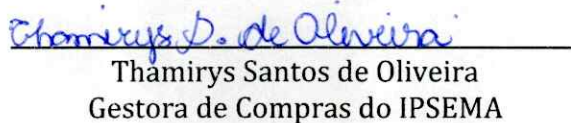 Thamirys S. de Oliveira
Thamirys Santos de Oliveira
Gestora de Compras do IPSEMA